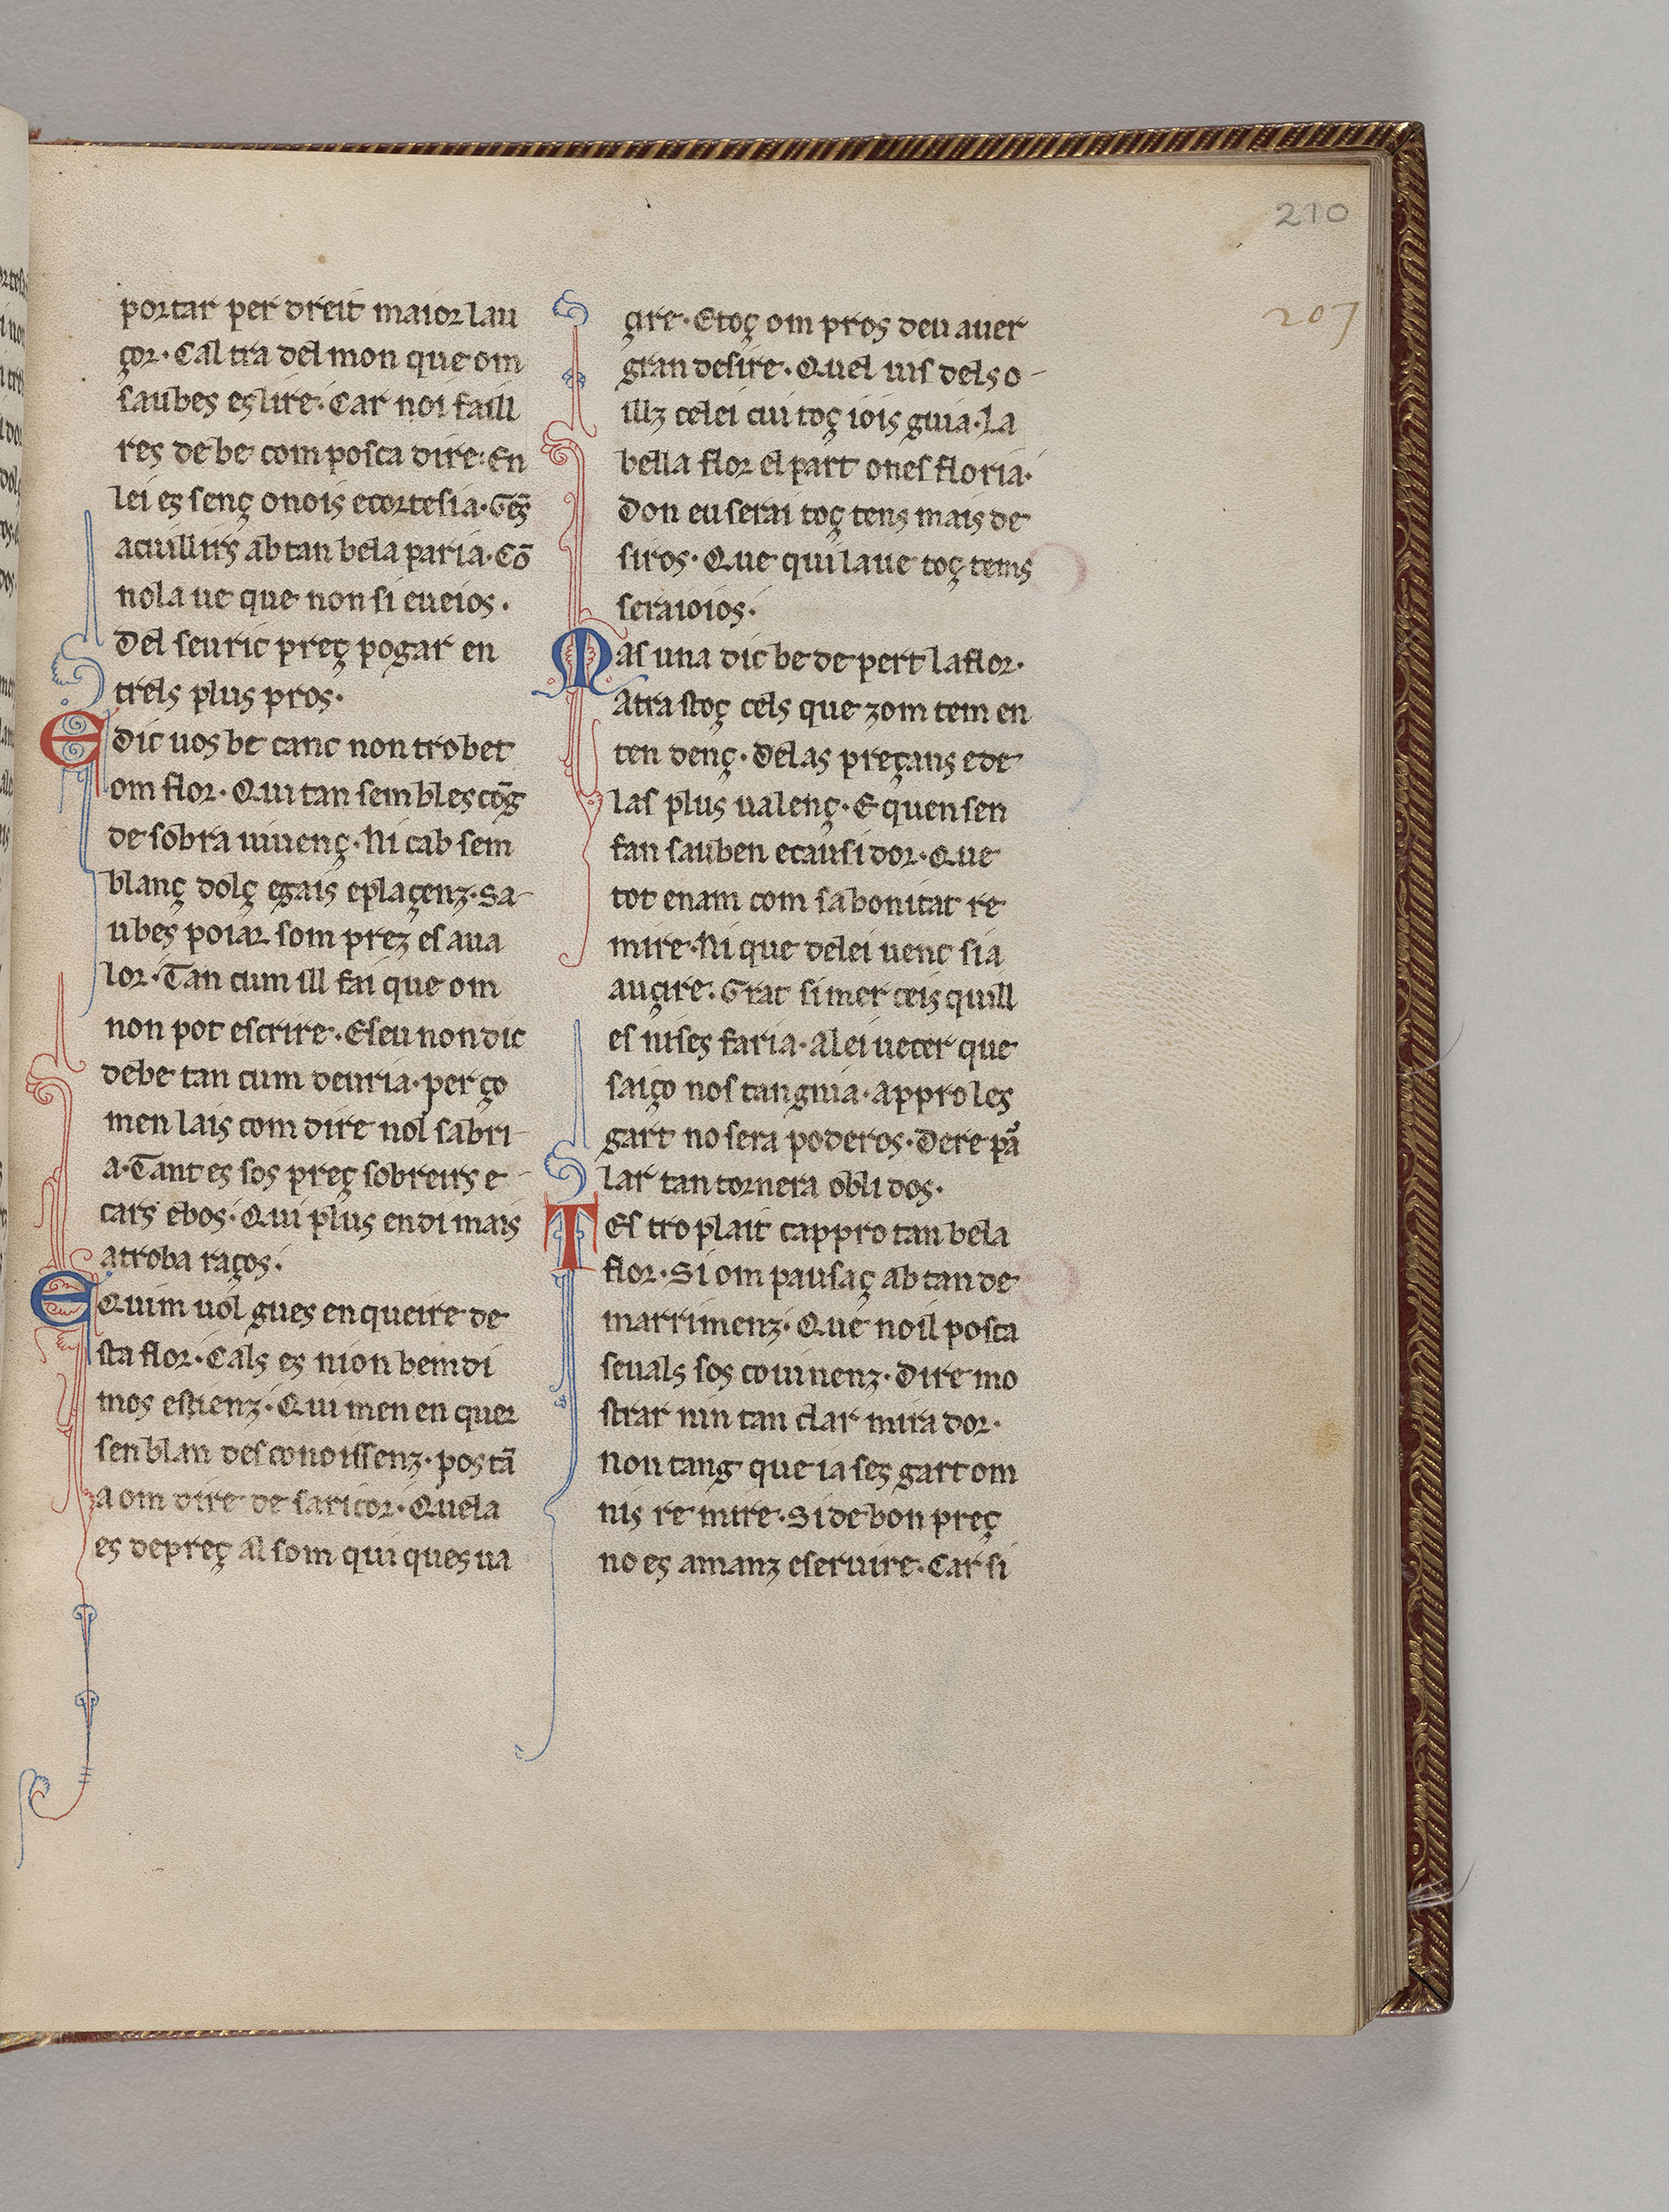 210
207
portar per dreit maior lau
çor· Cal tra del mon que om
saubes eslire· Car noi faill
res de be com posca dire· En
lei es senç onois e cortesia· Gēs
acuillirs ab tan bela paria· Cō
nola ue que non si eueios·
Del seu ric preç pogar en
trels plus pros·
E dic uos be canc non trobet
om flor· Qui tan sembles cōg
de sobra uiuenç· Ni cab sem
blanç dolç e gais e plaçenz· Sa-
ubes poiar som prez e sa ua
lor· Tan cum ill fai que om
non pot escrire· E seu non dic
de be tan cum deuria· per ço
men lais com dire nol sabri
a· Tant es sos preç sobreirs e
cars e bos· Qui plus en di mais
a troba raços·
E Quim uol gues enqueire de
sta flor· Cals es ni on bem di
mos escienz· Qui men en quer
sen blan desconoissenz· pos tā
a om dire de sa ricor· Quela
es de preç al som qui ques ua
çire· E toç om pros deu auer
gran desire· Quel uis dels o-
illz celei cui toç iois guia· La
bella flor el part on es floria·
Don eu serai toç tens mais de
siros· Que qui la ue toç tems
sera ioios·
Mas una dic be de pert la flor·
Atrastoç cels que zom tem en
ten denç· Delas preçans e de
las plus ualenç· E quen sen
fan sauben e causi dor· Que
tot enam com sa bonitat re
mire· Ni que de lei uenc si a
auçire· Grat si mer ceis quill
es nises faria· A lei uecer que
saiço nos tangnia· Appro les
gart no sera poderos· De re pā
lar tan tornera obli dos·
Tes tro plait cappro tan bela
flor· Si om pausaç ab tan de
marrimenz· Que noil posca
seuals sos couinenz· Dire mo
strar nin tan clar mirador·
Non tang que ia sez gart om
nis re mire· Si de bon preç
no es amanz e seruire· Car si